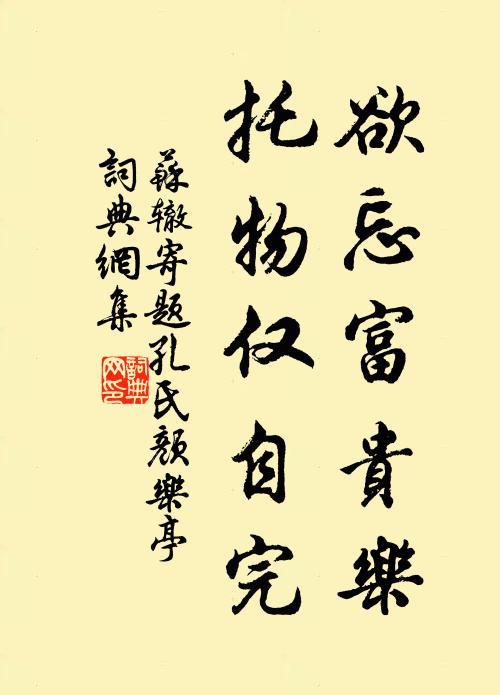 欲忘富貴樂
托物仅自完
蘇辙寄题孔氏颜樂亭
詞典網集
詞典
网印